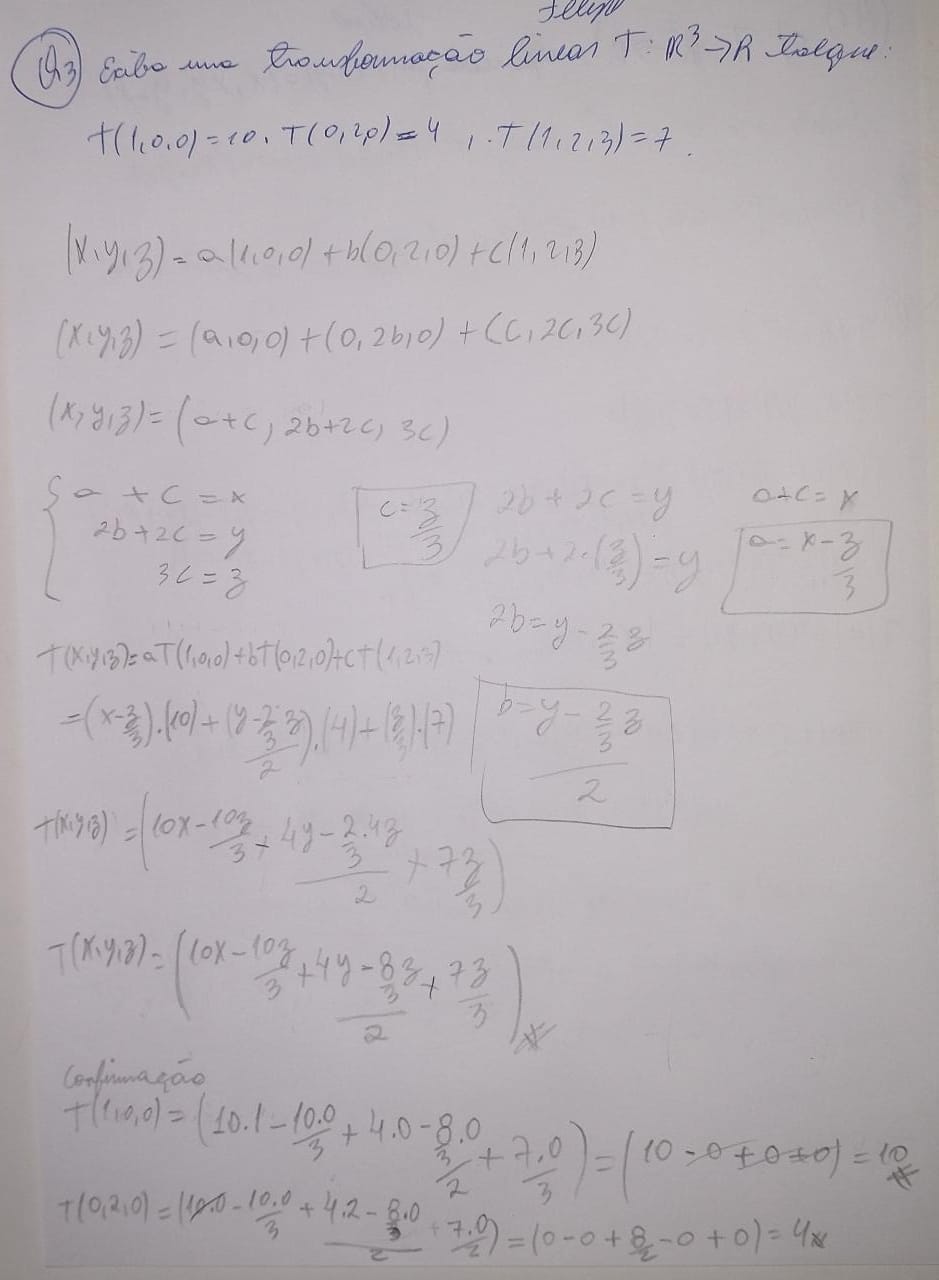 Felipe
Q3 Exiba uma transformação linear T: R³→R tal que:
T(1,0,0)=10, T(0,2,0)=4, T(1,2,3)=7.
(x,y,z)=a(1,0,0)+b(0,2,0)+c(1,2,3)
(x,y,z)=(a,0,0)+(0,2b,0)+(c,2c,3c)
(x,y,z)=(a+c, 2b+2c, 3c)
{a + c = x
2b+2c = y
3c = z
c = z/3
2b + 2c = y
2b+2.(z/3) = y
2b = y - 2/3 z
b = (y - 2/3 z)/2
a+c = x
a = x - z/3
T(x,y,z)=aT(1,0,0)+bT(0,2,0)+cT(1,2,3)
=(x-z/3).(10)+((y-2/3 z)/2).(4)+(z/3).(7)
T(x,y,z)=(10x-10z/3+(4y-2.4z/3)/2+7z/3)
T(x,y,z)=(10x-10z/3+(4y-8/3 z)/2+7z/3)
Confirmação
T(1,0,0)=(10.1-10.0/3+4.0-(8.0/3)/2+7.0/3)=(10-0+0+0)=10
T(0,2,0)=(10.0-10.0/3+(4.2-8.0/3)/2+7.0/2)=(0-0+8/2-0+0)=4